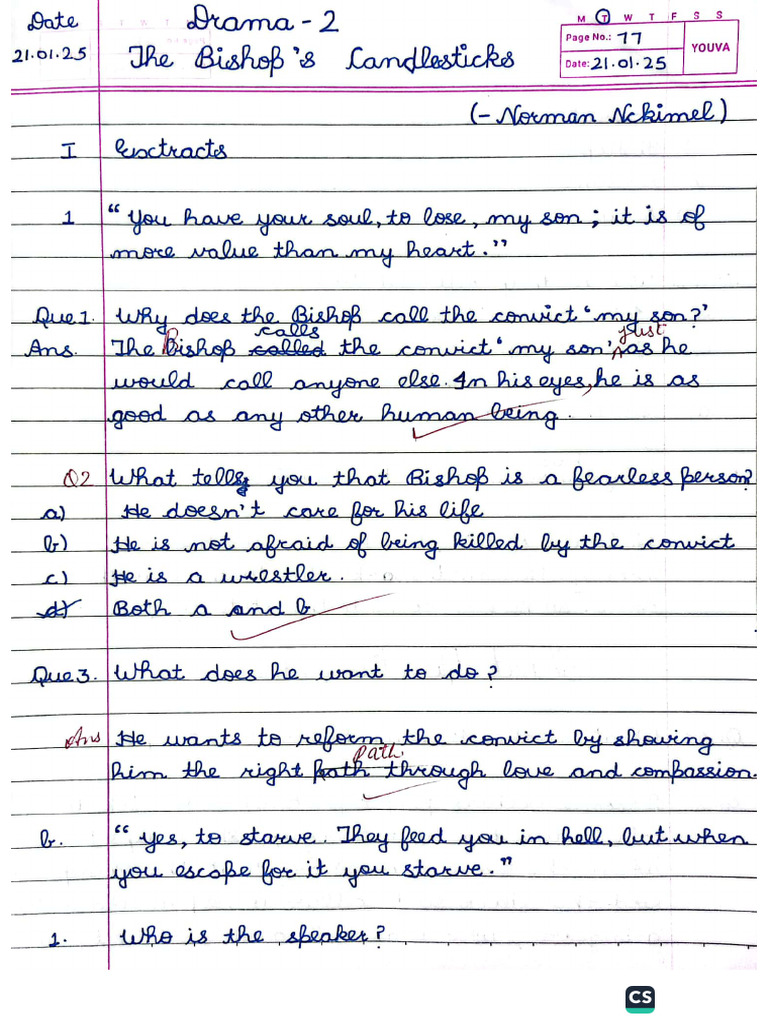 Date
21.01.25
Drama - 2
The Bishop's Candlesticks
M T W T F S S
Page No.: 77
Date: 21.01.25
YOUVA
(- Norman Nckimel)
I Exctracts
1 "You have your soul, to lose, my son ; it is of
more value than my heart."
Que 1. Why does the Bishop call the convict 'my son?'
calls just
Ans. The Bishop called the convict 'my son' as he
would call anyone else. In his eyes, he is as
good as any other human being.
Q2 What tells you that Bishop is a fearless person?
a) He doesn't care for his life
b) He is not afraid of being killed by the convict
c) He is a wrestler.
d) Both a and b
Que 3. What does he want to do?
Ans He wants to reform the convict by showing
Path.
him the right path through love and compassion.
b. "Yes, to starve. They feed you in hell, but when
you escape for it you starve."
1. Who is the speaker?
CS